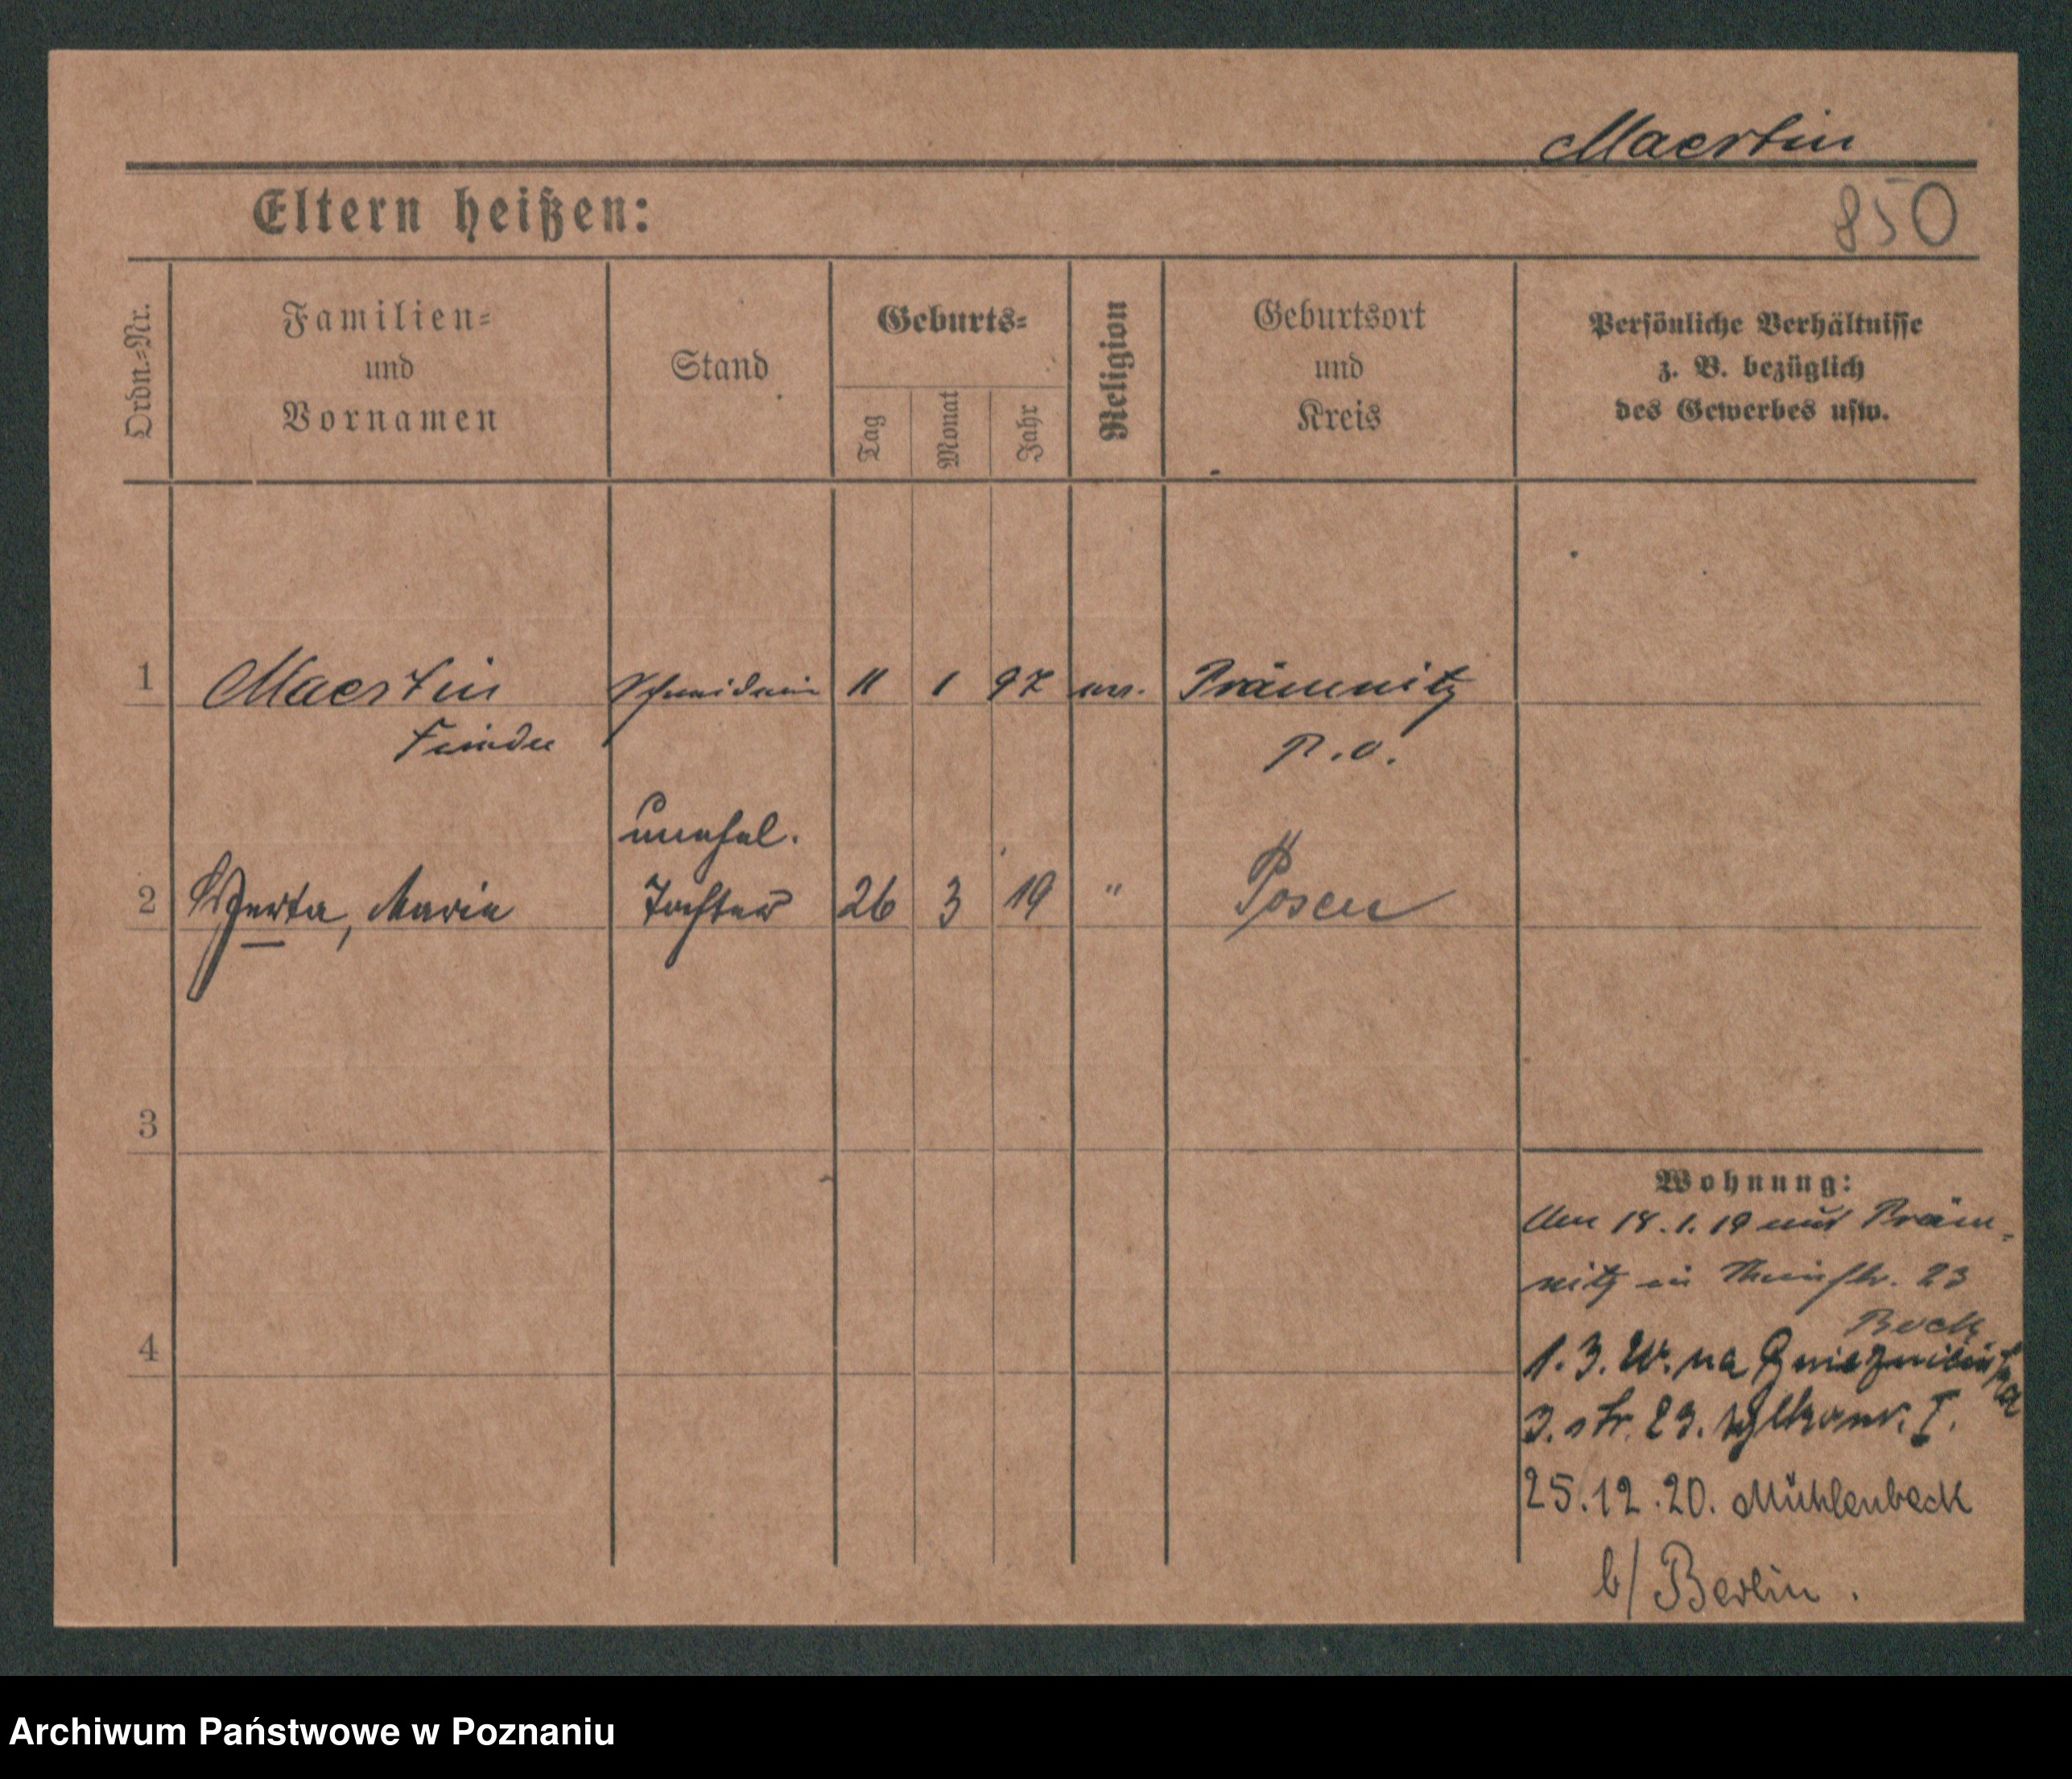 Maertin
850
Eltern heißen:
Ordn.=Nr.
Familien=
und
Vornamen
Stand
Geburts=
Tag
Monat
Jahr
Religion
Geburtsort
und
Kreis
Persönliche Verhältnisse
z. B. bezüglich
des Gewerbes usw.
1 Maertin 11 1 97 Prämnitz
P. O.
unehel.
2 Herta, Marie Tochter 26 3 19 " Posen
3
4
Wohnung:
Am 18.1.19 aus Präm-
nitz in 23
1. 3. W. na
3. str. 23. I.
25.12.20. Mühlenbeck
b/ Berlin.
Archiwum Państwowe w Poznaniu